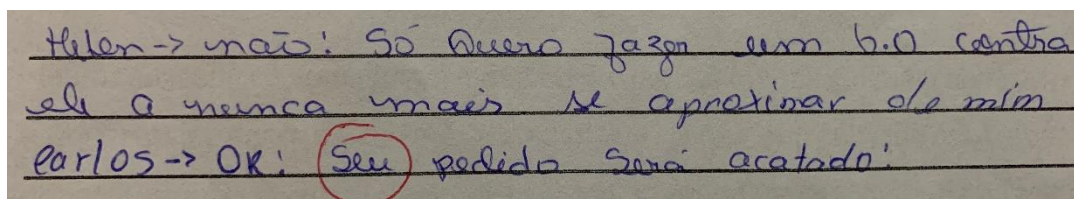 Helen-> não! Só Quero fazer um b.o contra
ele a nunca mais se aproxinar de mim
Carlos-> OK! Seu pedido Será acatado!